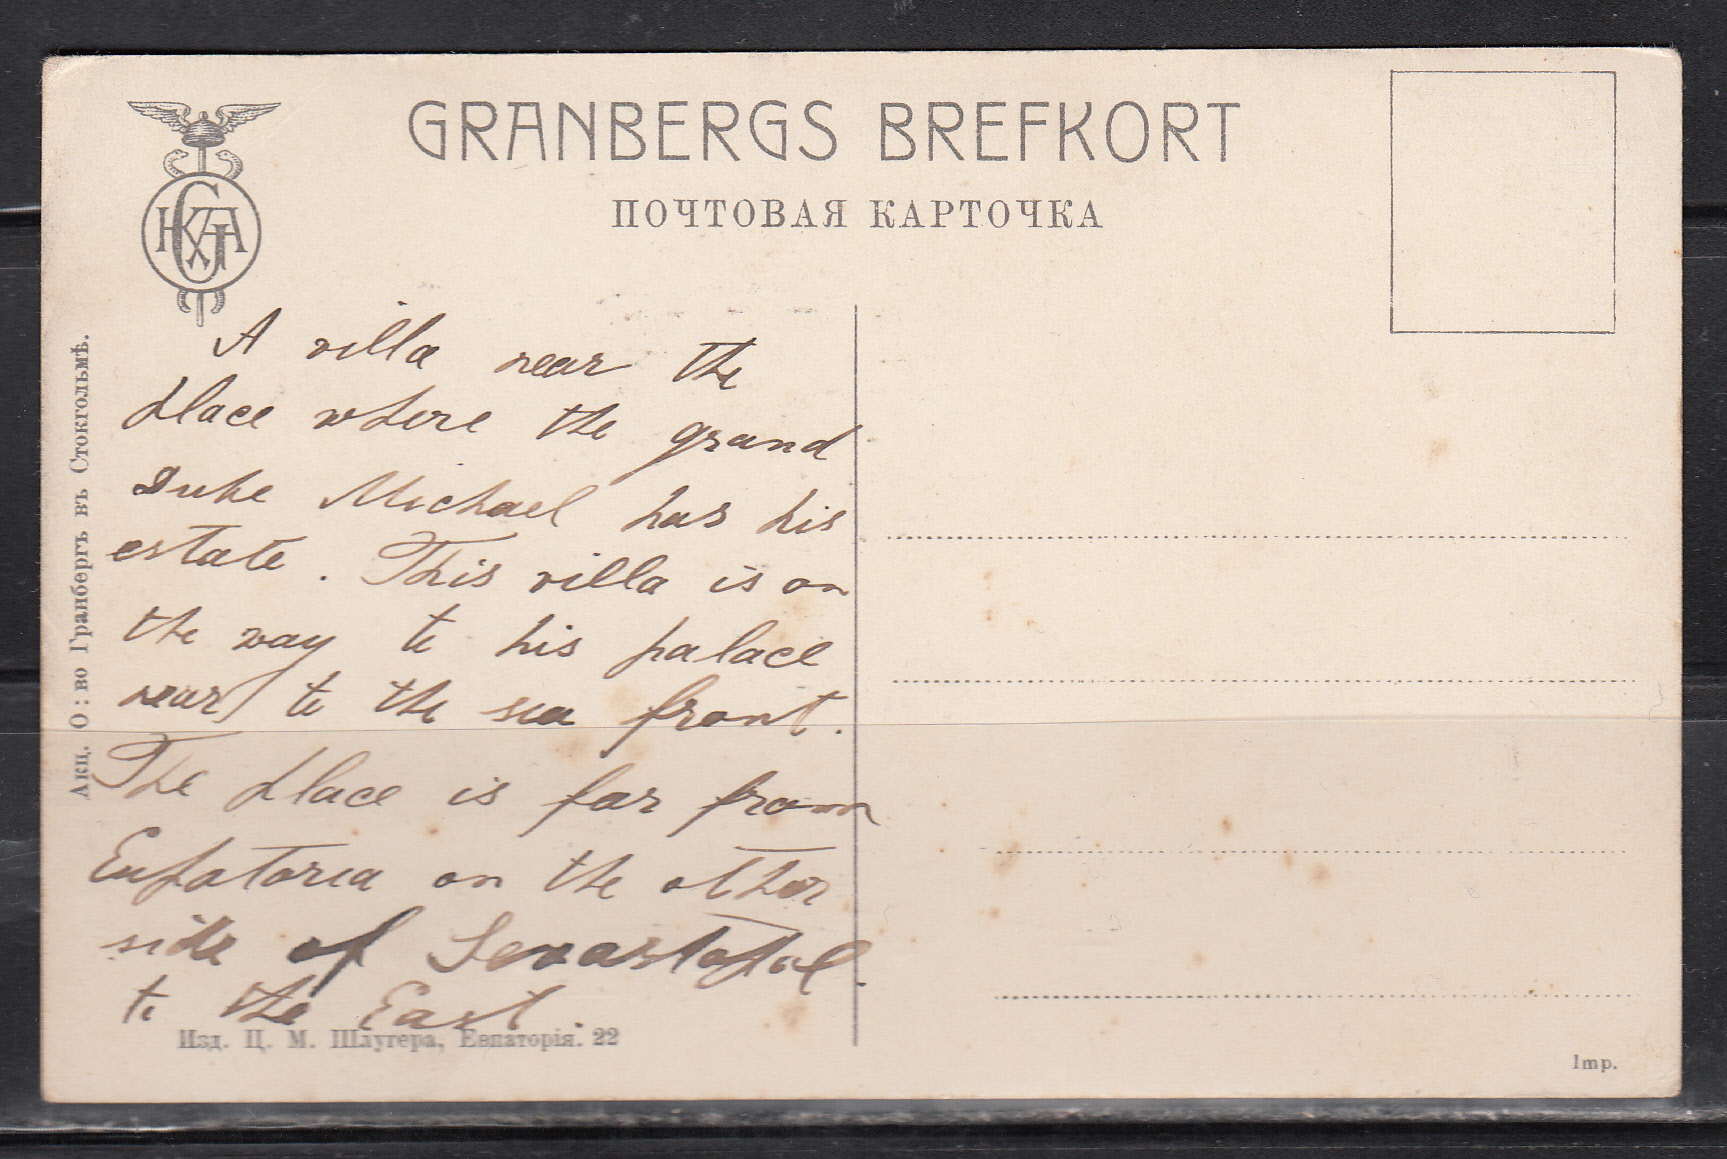 GRANBERGS BREFKORT
ПОЧТОВАЯ КАРТОЧКА
Акц. О: во Гранбергъ въ Стокгольмѣ.
A villa near the
place where the grand
Duke Michael has his
estate. This villa is on
the way to his palace
near to the sea front.
The place is far from
Eupatoria on the other
side of Sevastopol.
to the East.
Изд. Ц. М. Шлугера, Евпаторія. 22
Imp.